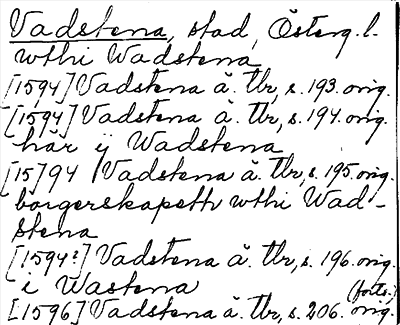 Vadstena, stad, Österg.l.
wthi Wadstena
[1594] Vadstena ä. tb, s. 193. orig.
[1594] Vadstena ä. tb, s. 194. orig.
här ij Wadstena
[15]94 Vadstena ä. tb, s. 195. orig.
borgerskapeth wthi Wad-
stena
[1594?] Vadstena ä. tb, s. 196. orig.
i Wastena (forts.)
[1596] Vadstena ä. tb, s. 206. orig.